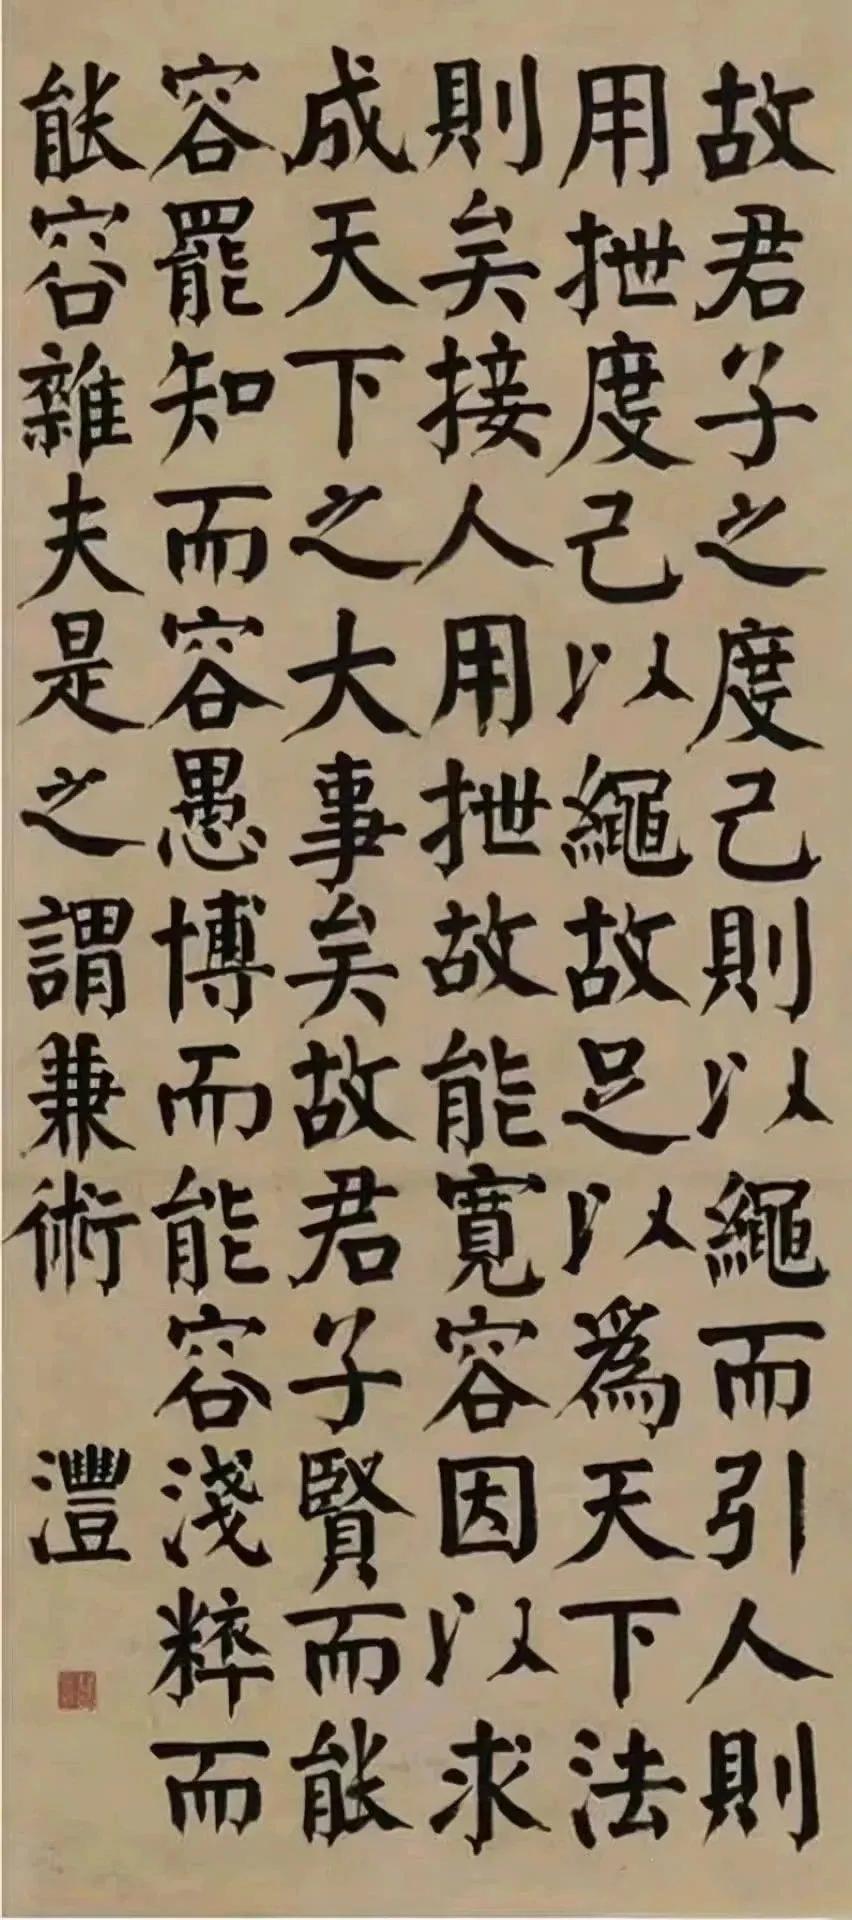 故君子之度己則以繩而引人則
用抴度己以繩故足以為天下法
則矣接人用抴故能寬容因以求
成天下之大事矣故君子賢而能
容罷知而容愚博而能容淺粹而
能容雜夫是之謂兼術
灃